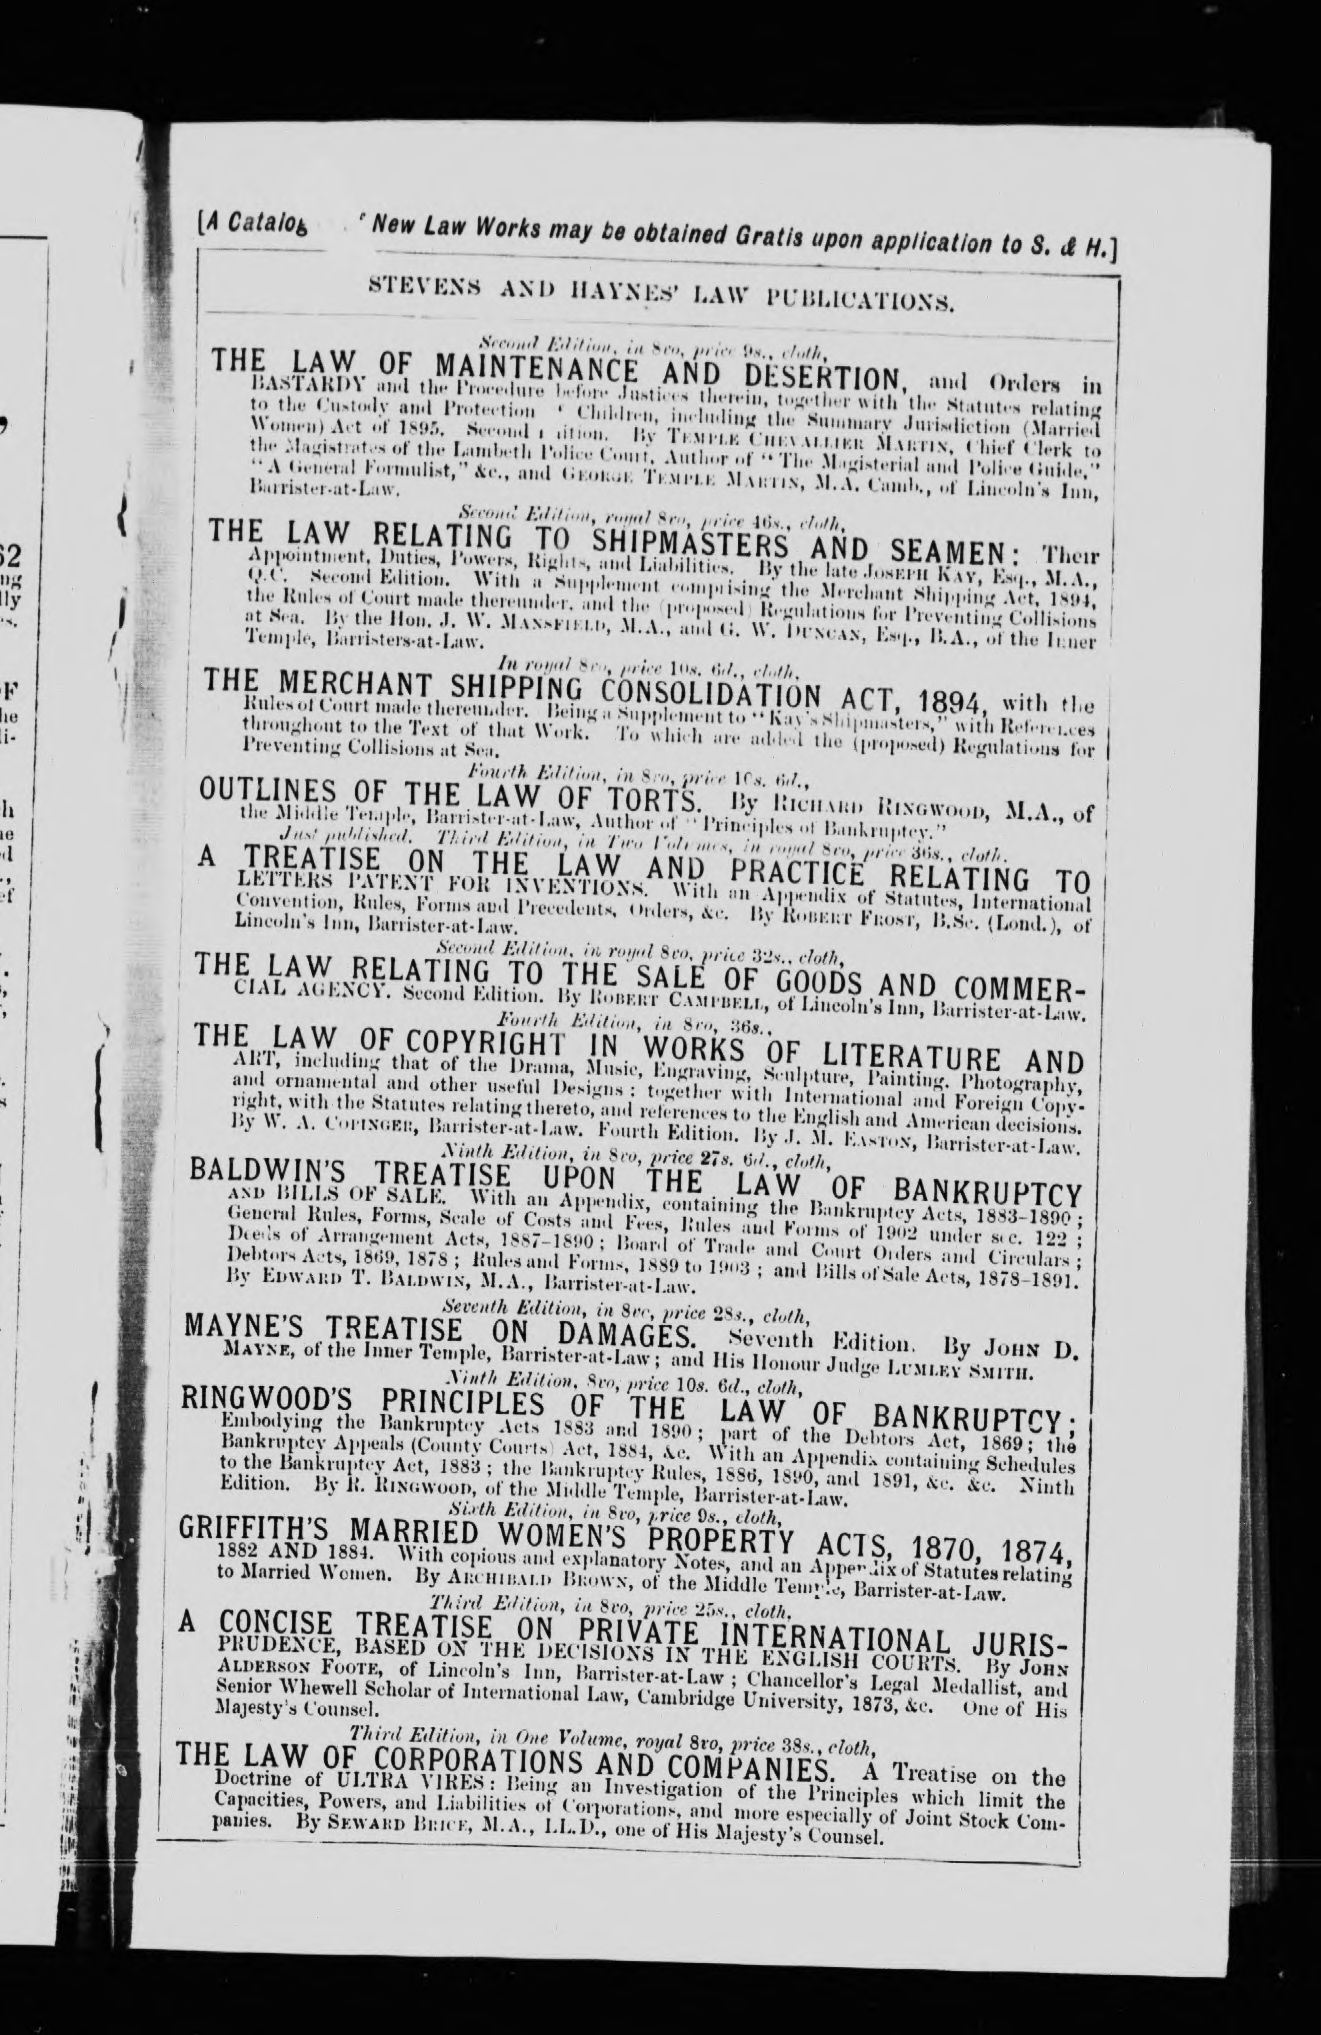 [A Catalog ' New Law Works may be obtained Gratis upon application to S. & H.]
STEVENS AND HAYNES' LAW PUBLICATIONS.
Second Edition, in 8vo, price 9s., cloth,
THE LAW OF MAINTENANCE AND DESERTION, and Orders in
BASTARDY and the Procedure before Justices therein, together with the Statutes relating
to the Custody and Protection Children, including the Summary Jurisdiction (Married
Women) Act of 1895. Second ition. By TEMPLE CHEVALLIER MARTIN, Chief Clerk to
the Magistrates of the Lambeth Police Court, Author of "The Magisterial and Police Guide,"
"A General Formulist," &c., and GEORGE TEMPLE MARTIN, M.A. Camb., of Lincoln's Inn,
Barrister-at-Law.
Second Edition, royal 8vo, price 46s., cloth,
THE LAW RELATING TO SHIPMASTERS AND SEAMEN: Their
Appointment, Duties, Powers, Rights, and Liabilities. By the late JOSEPH KAY, Esq., M.A.,
Q.C. Second Edition. With a Supplement comprising the Merchant Shipping Act, 1894,
the Rules of Court made thereunder, and the (proposed) Regulations for Preventing Collisions
at Sea. By the Hon. J. W. MANSFIELD, M.A., and G. W. DUNCAN, Esq., B.A., of the Inner
Temple, Barristers-at-Law.
In royal 8vo, price 10s. 6d., cloth,
THE MERCHANT SHIPPING CONSOLIDATION ACT, 1894, with the
Rules of Court made thereunder. Being a Supplement to "Kay's Shipmasters," with References
throughout to the Text of that Work. To which are added the (proposed) Regulations for
Preventing Collisions at Sea.
Fourth Edition, in 8vo, price 10s. 6d.,
OUTLINES OF THE LAW OF TORTS. By RICHARD RINGWOOD, M.A., of
the Middle Temple, Barrister-at-Law, Author of "Principles of Bankruptcy."
Just published. Third Edition, in Two Volumes, in royal 8vo, price 36s., cloth.
A TREATISE ON THE LAW AND PRACTICE RELATING TO
LETTERS PATENT FOR INVENTIONS. With an Appendix of Statutes, International
Convention, Rules, Forms and Precedents, Orders, &c. By ROBERT FROST, B.Sc. (Lond.), of
Lincoln's Inn, Barrister-at-Law.
Second Edition, in royal 8vo, price 32s., cloth,
THE LAW RELATING TO THE SALE OF GOODS AND COMMER-
CIAL AGENCY. Second Edition. By ROBERT CAMPBELL, of Lincoln's Inn, Barrister-at-Law.
Fourth Edition, in 8vo, 36s.,
THE LAW OF COPYRIGHT IN WORKS OF LITERATURE AND
ART, including that of the Drama, Music, Engraving, Sculpture, Painting, Photography,
and ornamental and other useful Designs; together with International and Foreign Copy-
right, with the Statutes relating thereto, and references to the English and American decisions.
By W. A. COPINGER, Barrister-at-Law. Fourth Edition. By J. M. EASTON, Barrister-at-Law.
Ninth Edition, in 8vo, price 27s. 6d., cloth,
BALDWIN'S TREATISE UPON THE LAW OF BANKRUPTCY
AND BILLS OF SALE. With an Appendix, containing the Bankruptcy Acts, 1883-1890;
General Rules, Forms, Scale of Costs and Fees, Rules and Forms of 1902 under sec. 122;
Deeds of Arrangement Acts, 1887-1890; Board of Trade and Court Orders and Circulars;
Debtors Acts, 1869, 1878; Rules and Forms, 1889 to 1903; and Bills of Sale Acts, 1878-1891.
By EDWARD T. BALDWIN, M.A., Barrister-at-Law.
Seventh Edition, in 8vo, price 28s., cloth,
MAYNE'S TREATISE ON DAMAGES. Seventh Edition. By JOHN D.
MAYNE, of the Inner Temple, Barrister-at-Law; and His Honour Judge LUMLEY SMITH.
Ninth Edition, 8vo, price 10s. 6d., cloth,
RINGWOOD'S PRINCIPLES OF THE LAW OF BANKRUPTCY;
Embodying the Bankruptcy Acts 1883 and 1890; part of the Debtors Act, 1869; the
Bankruptcy Appeals (County Courts) Act, 1884, &c. With an Appendix containing Schedules
to the Bankruptcy Act, 1883; the Bankruptcy Rules, 1886, 1890, and 1891, &c. &c. Ninth
Edition. By R. RINGWOOD, of the Middle Temple, Barrister-at-Law.
Sixth Edition, in 8vo, price 9s., cloth,
GRIFFITH'S MARRIED WOMEN'S PROPERTY ACTS, 1870, 1874,
1882 AND 1884. With copious and explanatory Notes, and an Appendix of Statutes relating
to Married Women. By ARCHIBALD BROWN, of the Middle Temple, Barrister-at-Law.
Third Edition, in 8vo, price 25s., cloth,
A CONCISE TREATISE ON PRIVATE INTERNATIONAL JURIS-
PRUDENCE, BASED ON THE DECISIONS IN THE ENGLISH COURTS. By JOHN
ALDERSON FOOTE, of Lincoln's Inn, Barrister-at-Law; Chancellor's Legal Medallist, and
Senior Whewell Scholar of International Law, Cambridge University, 1873, &c. One of His
Majesty's Counsel.
Third Edition, in One Volume, royal 8vo, price 38s., cloth,
THE LAW OF CORPORATIONS AND COMPANIES. A Treatise on the
Doctrine of ULTRA VIRES: Being an Investigation of the Principles which limit the
Capacities, Powers, and Liabilities of Corporations, and more especially of Joint Stock Com-
panies. By SEWARD BRICE, M.A., LL.D., one of His Majesty's Counsel.